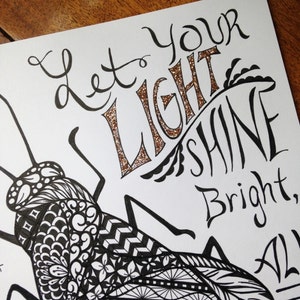 Let YOUR
LIGHT
SHINE
Bright,